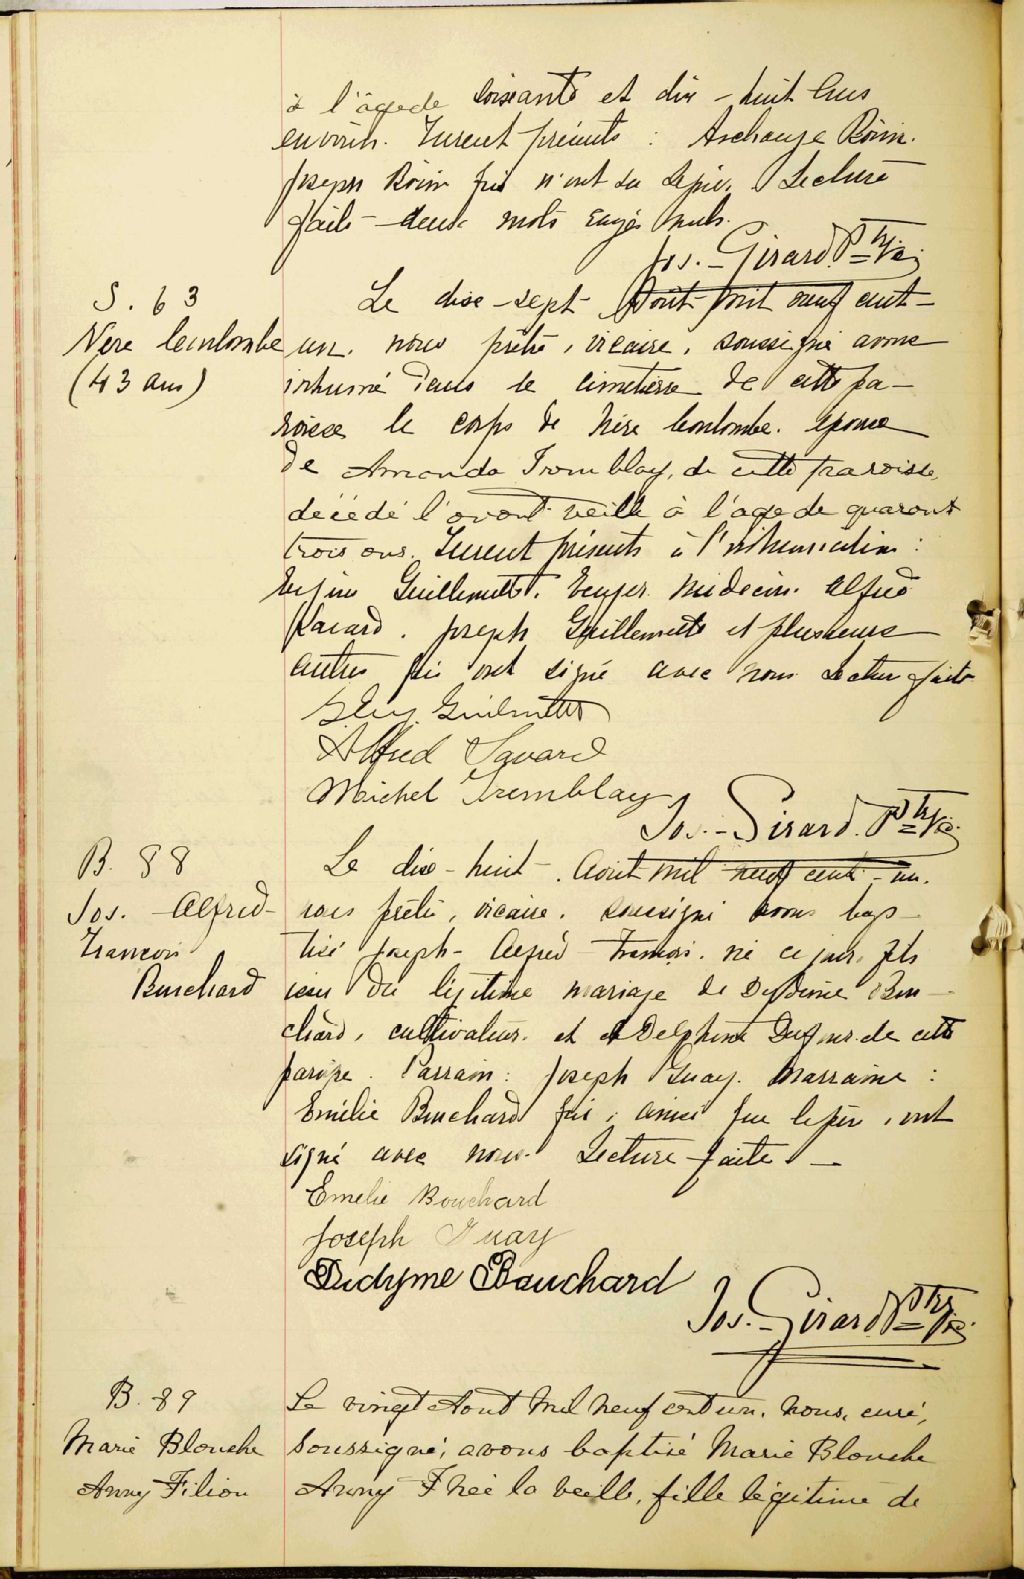 à l'âge de soixante et dix-huit ans
environ. Furent présents : Archange Boivin.
Joseph Boivin qui n'ont su signer. Lecture
faite - deux mots rayés nuls.
Jos. - Girard Ptre Vic.
S. 63
Nère Coulombe
(43 ans)
Le dix-sept Août mil neuf cent-
un, nous prêtre, vicaire, soussigné avons
inhumé dans le cimetière de cette pa-
roisse le corps de Nère Coulombe. époux
de Amanda Tremblay, de cette paroisse,
décédé l'avant veille à l'age de quarant
trois ans. Furent présents à l'inhumation :
Guillemette. médecin. Alfred
Savard. Joseph Guillemette et plusieurs
autres qui ont signé avec nous Lecture faite
Guilmette
Alfred Savard
Michel Tremblay
Jos. - Girard. Ptre Vic.
B. 88
Jos. - Alfred-
François
Bouchard
Le dix-huit - Août mil neuf cent-un.
nous prêtre, vicaire. soussigné avons bap-
tisé Joseph-Alfred-François. né ce jour, fils
issu du légitime mariage de Didyme Bou-
chard, cultivateur. et Delphine Dufour de cette
paroisse. Parrain : Joseph Guay. Marraine :
Emélie Bouchard qui, ainsi que le père, ont
signé avec nous. Lecture faite. —
Emelie Bouchard
Joseph Guay
Didyme Bouchard
Jos. - Girard Ptre Vic.
B. 89
Marie Blanche
Anny Filion
Le vingt Aout mil neuf cent un. nous, curé,
Soussigné, avons baptisé Marie Blanche
Anny F née la veille, fille légitime de